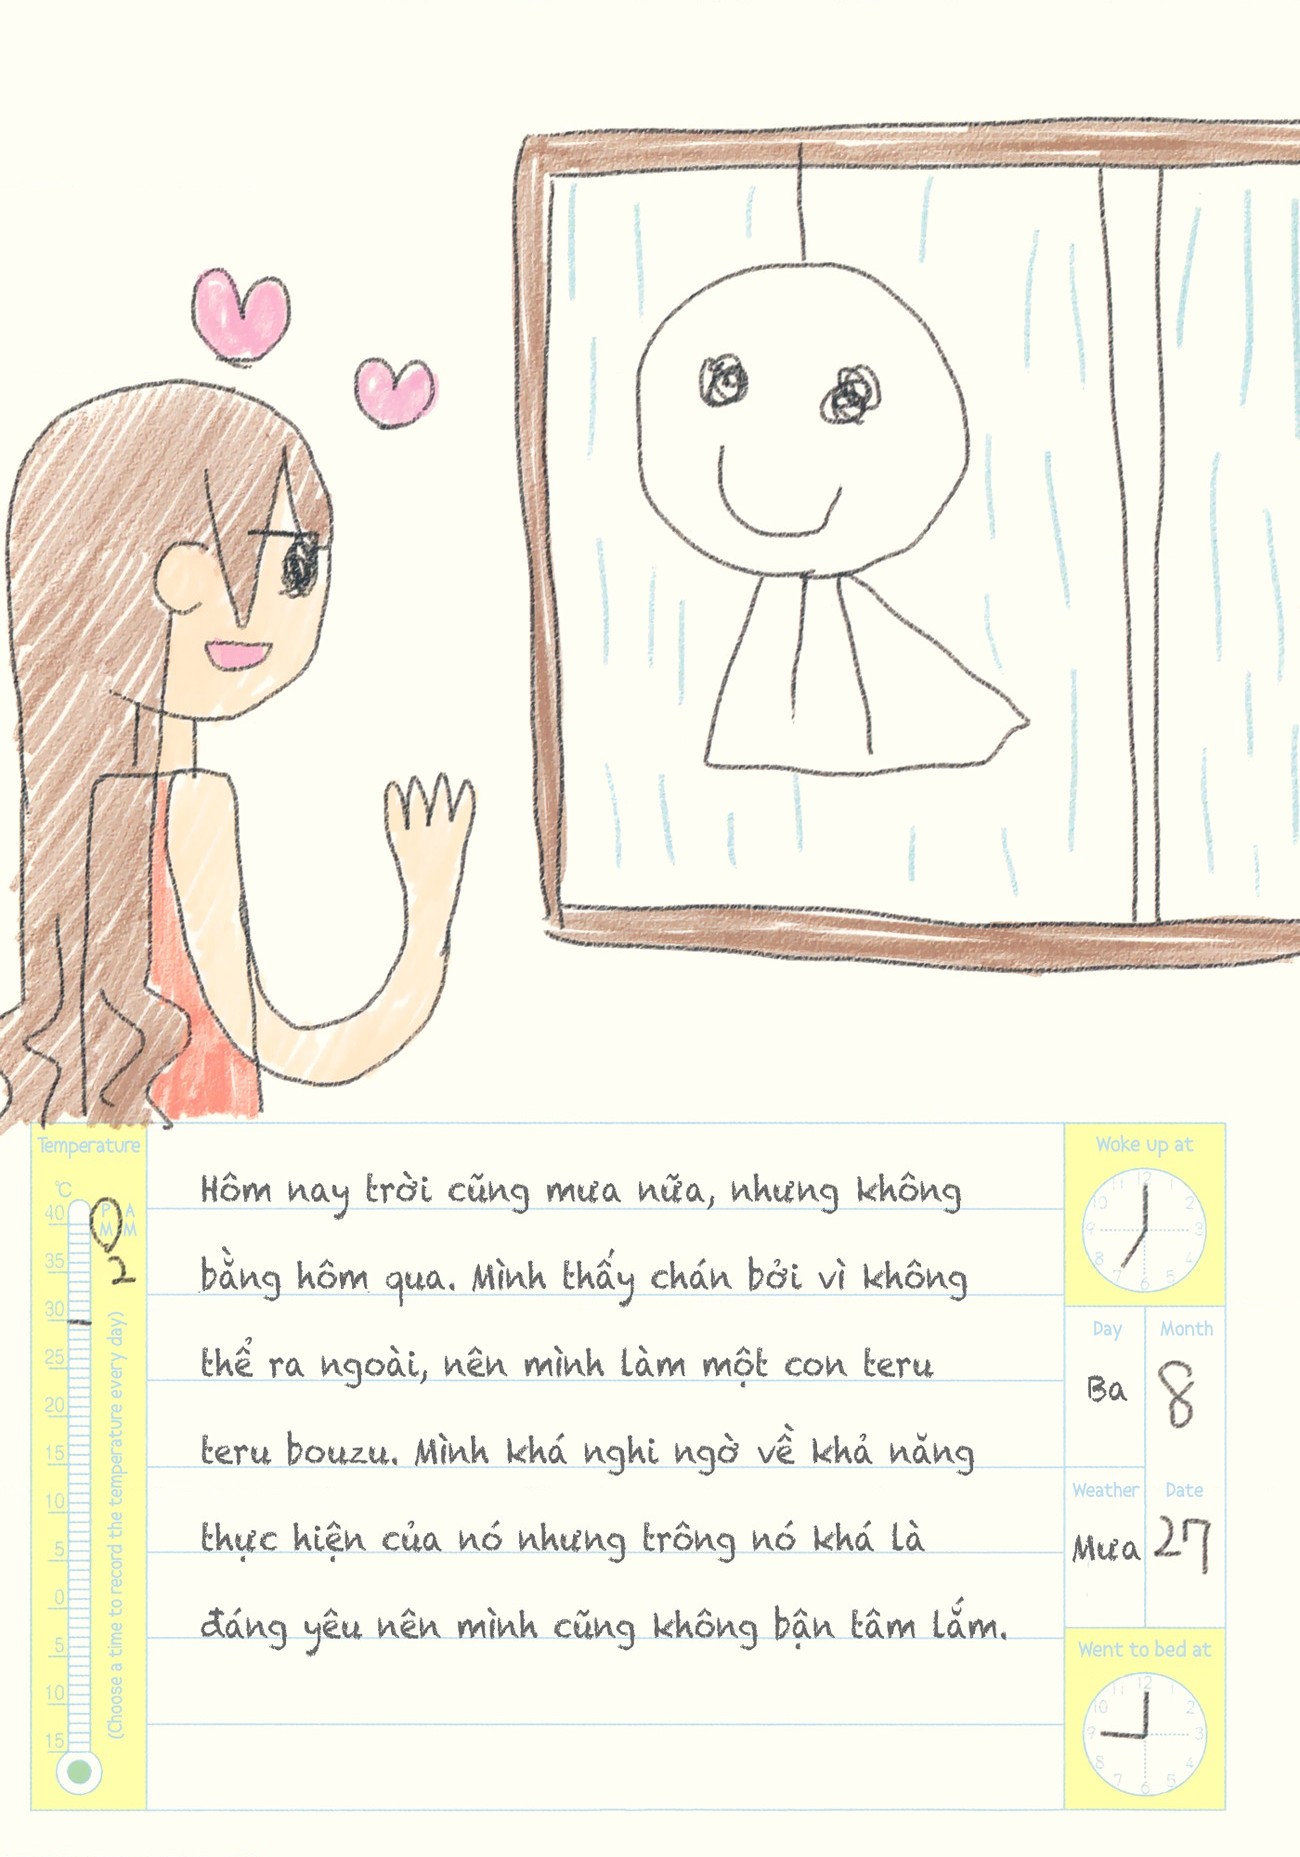 Temperature
°C
40
35
30
25
20
15
10
5
0
5
10
15
P M
A M
2
(Choose a time to record the temperature every day)
Hôm nay trời cũng mưa nữa, nhưng không
bằng hôm qua. Mình thấy chán bởi vì không
thể ra ngoài, nên mình làm một con teru
teru bouzu. Mình khá nghi ngờ về khả năng
thực hiện của nó nhưng trông nó khá là
đáng yêu nên mình cũng không bận tâm lắm.
Woke up at
12
1
2
3
4
5
6
7
8
9
10
11
Day
Month
Ba
8
Weather
Date
Mưa
27
Went to bed at
12
1
2
3
4
5
6
7
8
9
10
11